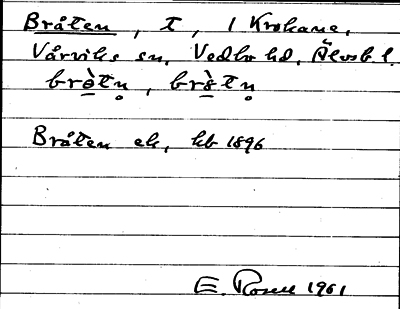 Bråten, t, 1 Krokane,
Vårviks sn, Vedbo hd, Älvsb. l.
bròtn̥, bròtn̥
Bråten ek, kb 1896
E. Rosell 1961